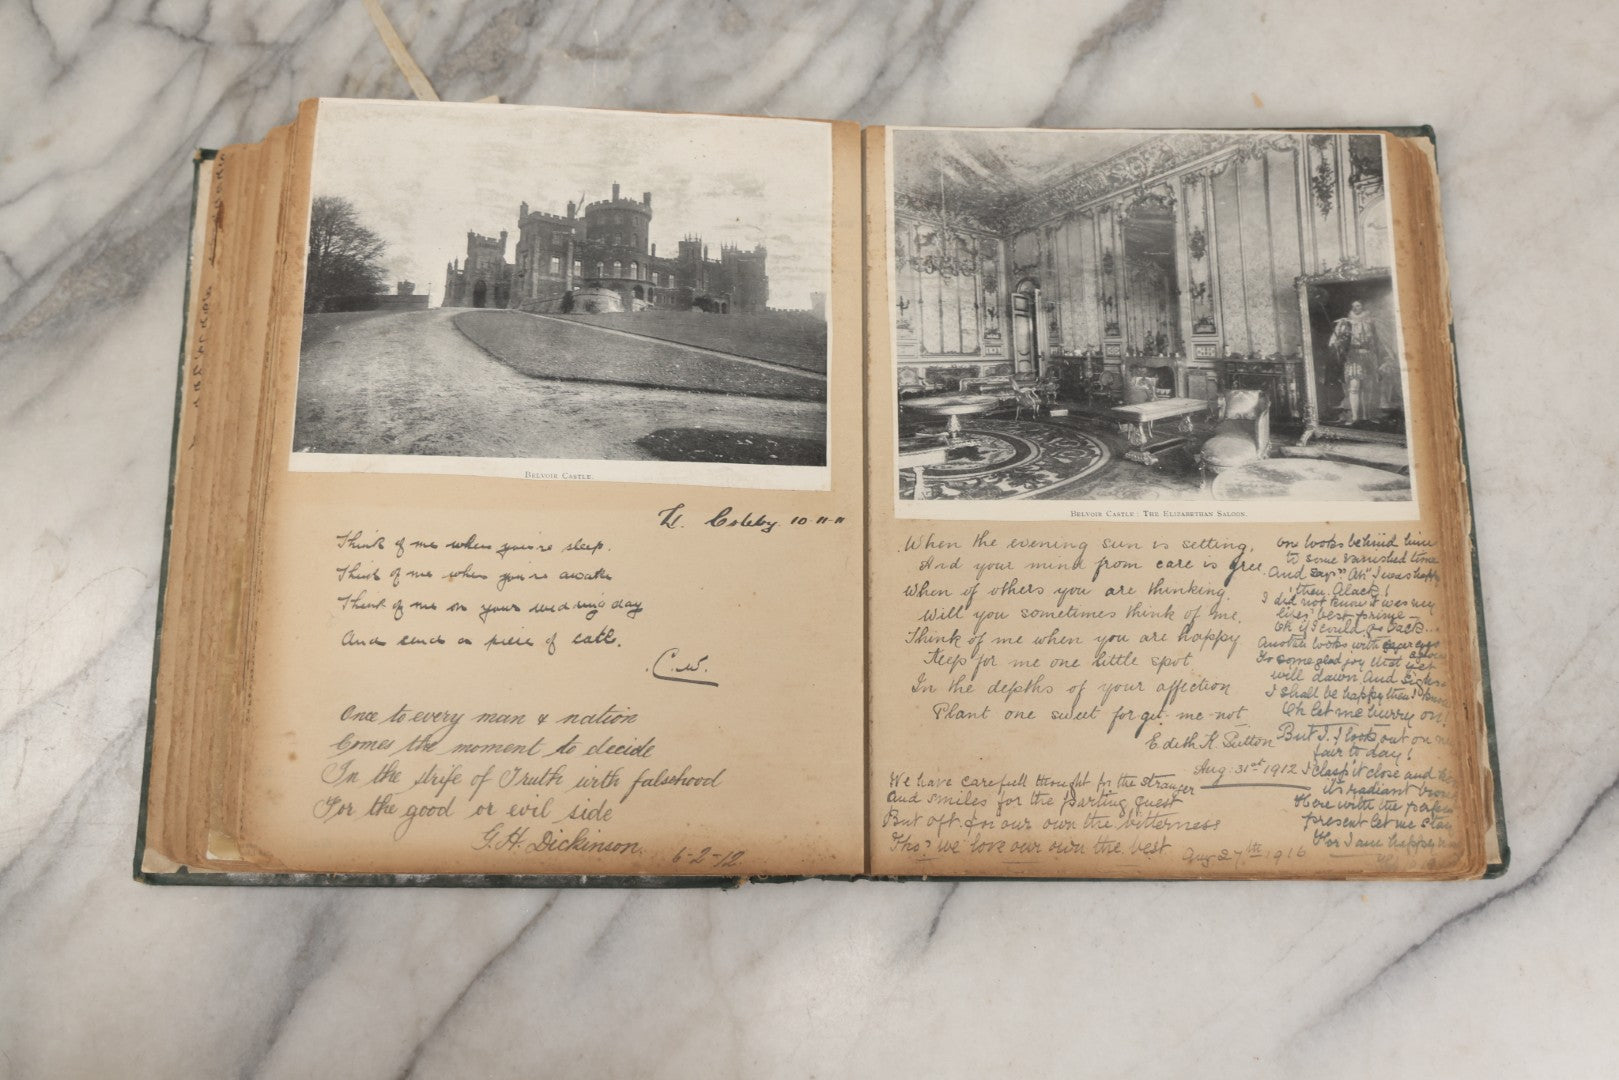 BELVOIR CASTLE.
10-11-11
Think of me when you're sleep.
Think of me when you're awake
Think of me on your wedding day
And send a piece of cake.
C.W.
Once to every man & nation
Comes the moment to decide
In the strife of Truth with falsehood
For the good or evil side
G. H. Dickinson.
6-2-12
BELVOIR CASTLE: THE ELIZABETHAN SALOON.
When the evening sun is setting,
And your mind from care is free.
When of others you are thinking,
Will you sometimes think of me.
Think of me when you are happy
Keep for me one little spot
In the depths of your affection
Plant one sweet forget-me-not.
Edith K. Sutton
Aug. 31st 1912
We have carefull thought for the stranger
And smiles for the parting guest
But oft for our own the bitterness
Tho' we love our own the best
Aug 27th 1916
One looks behind him
to some vanished time
And says "Ah" I was happy
then, Alack!
I did not know it was my
lifes' best prime -
Oh if I could go back...
Another looks with eager eyes
To some glad joy that yet
will dawn And sighs
I shall be happy then I know
Oh let me hurry on!
But I. I look out on my
fair to day!
I clasp it close and
its radiant brow
Here with the perfect
present let me stay
For I am happy